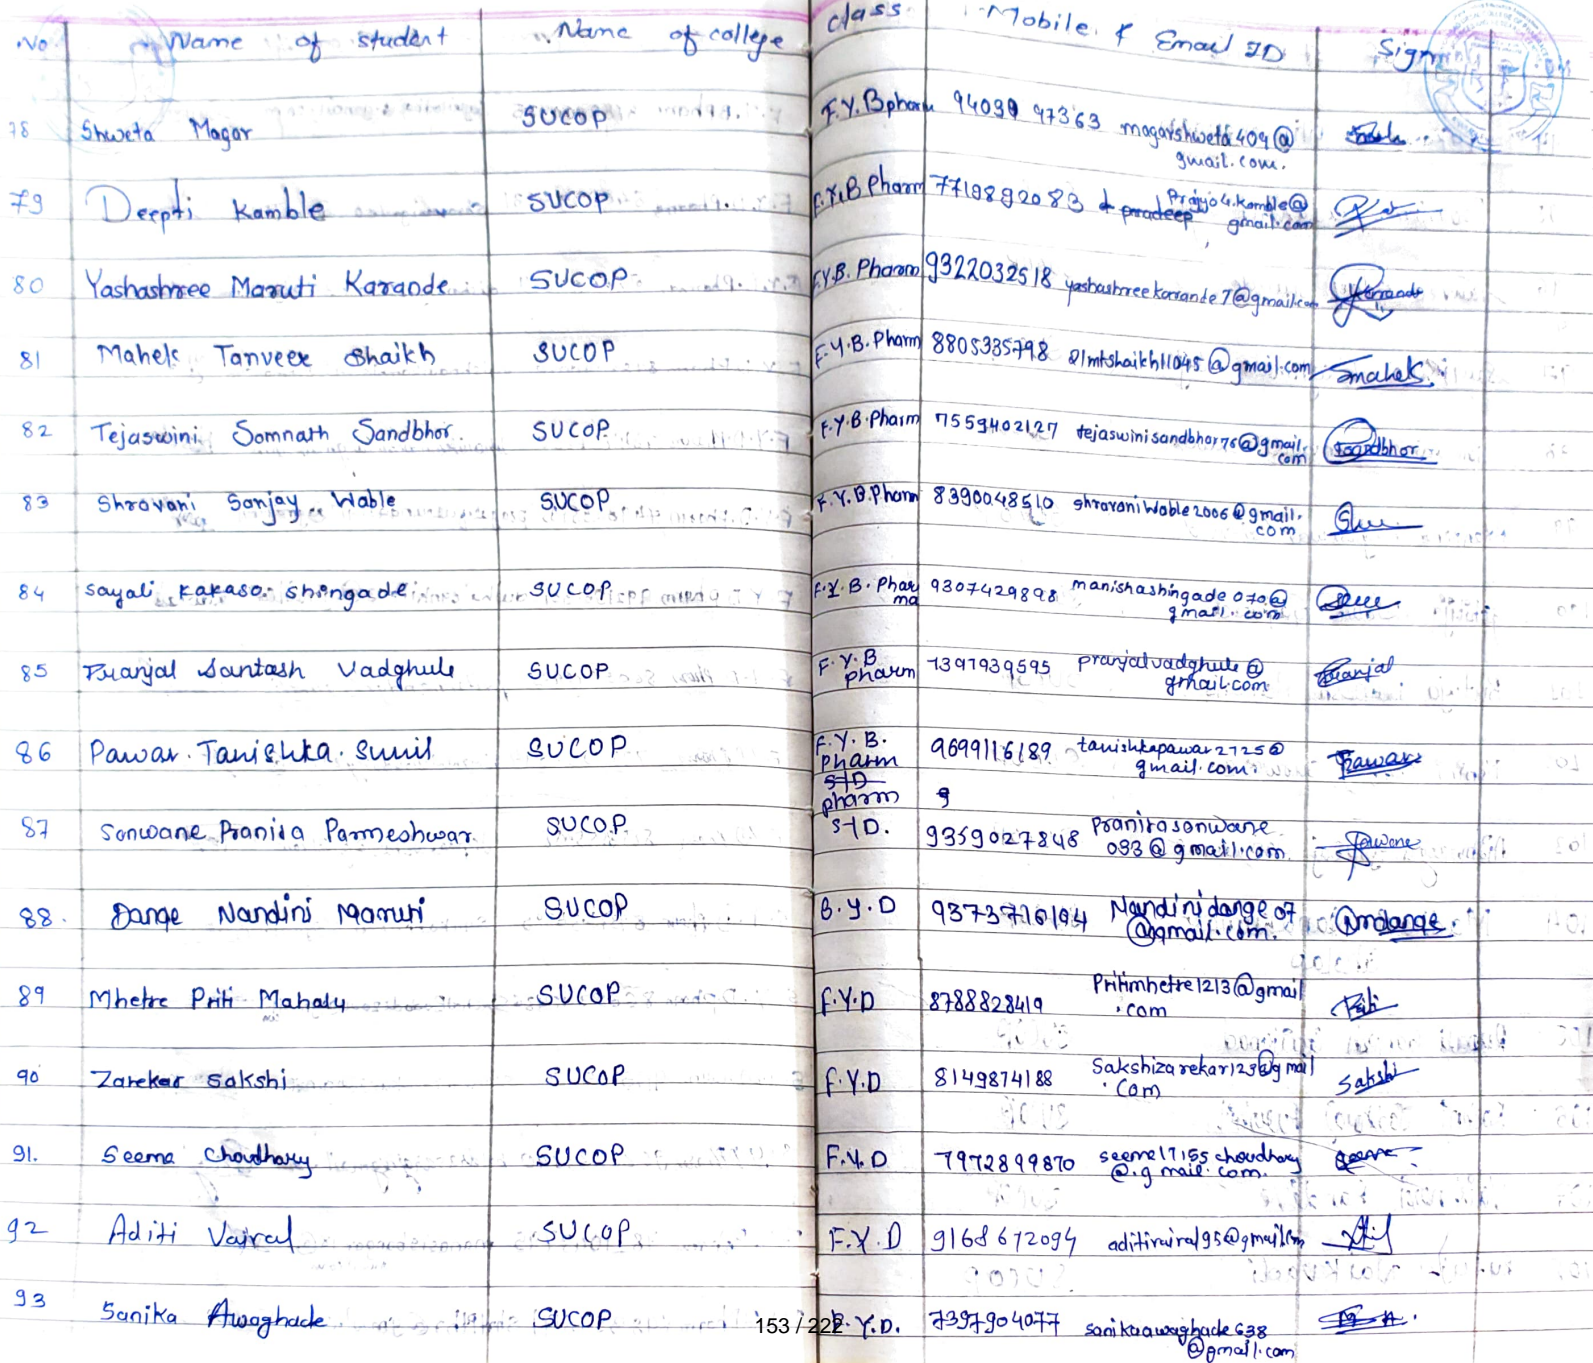 No Name of student Name of college class Mobile & Email ID Sign
78 Shweta Magar SUCOP F.Y. B pharm 94039 97363 magarshweta409@
gmail.com.
79 Deepti Kamble SUCOP F.Y.B Pharm 7719892083 Prajyo4.kamble@
pradeep gmail.com
80 Yashashree Maruti Karande SUCOP F.Y.B. Pharm 9322032518 yashashreekarande7@gmail.com Karande
81 Mahek Tanveer Shaikh SUCOP F.Y.B. Pharm 8805335798 21mtshaikh11045@gmail.com mahek.
82 Tejaswini Somnath Sandbhor SUCOP F.Y.B.Pharm 7559402127 tejaswinisandbhor76@gmail. Sandbhor
com
83 Shravani Sanjay Wable SUCOP F.Y.B.Pharm 8390048510 shravaniwable2006@gmail.
com
84 Sayali Kakaso. Shingade SUCOP F.Y.B. Phar 9307429898 manishashingade070@
ma gmail.com
85 Pranjal Santosh Vadghule SUCOP F.Y.B 7397939595 pranjalvadghule@ Pranjal
pharm gmail.com
86 Pawar. Tanishka. Sunil SUCOP F.Y.B. 9699116189 tanishkapawar2725@ Pawar
Pharm gmail.com.
S.Y.D
pharm 9
87 Sonwane Pranita Parmeshwar SUCOP S.Y.D. 9359027848 pranitasonwane
093@gmail.com
88. Dange Nandini Maruti SUCOP B.Y.D 9373716194 Nandinidange07 Nmdange.
@gmail.com.
89 Mhetre Priti Mahadu SUCOP F.Y.D 8788828419 Pritimhetre1213@gmail Priti
.com
90 Zarekar Sakshi SUCOP F.Y.D 8149874188 Sakshizarekar123@gmail Sakshi
.Com
91. Seema Choudhary SUCOP F.Y.D 7972899870 seeme17155choudhary
@.gmail.com.
92 Aditi Vairal SUCOP F.Y.D 9168672094 aditivairal95@gmail.com
93 Sanika Awaghade SUCOP F.Y.D. 7397904077 sanikaawaghade638
@gmail.com
153 / 222